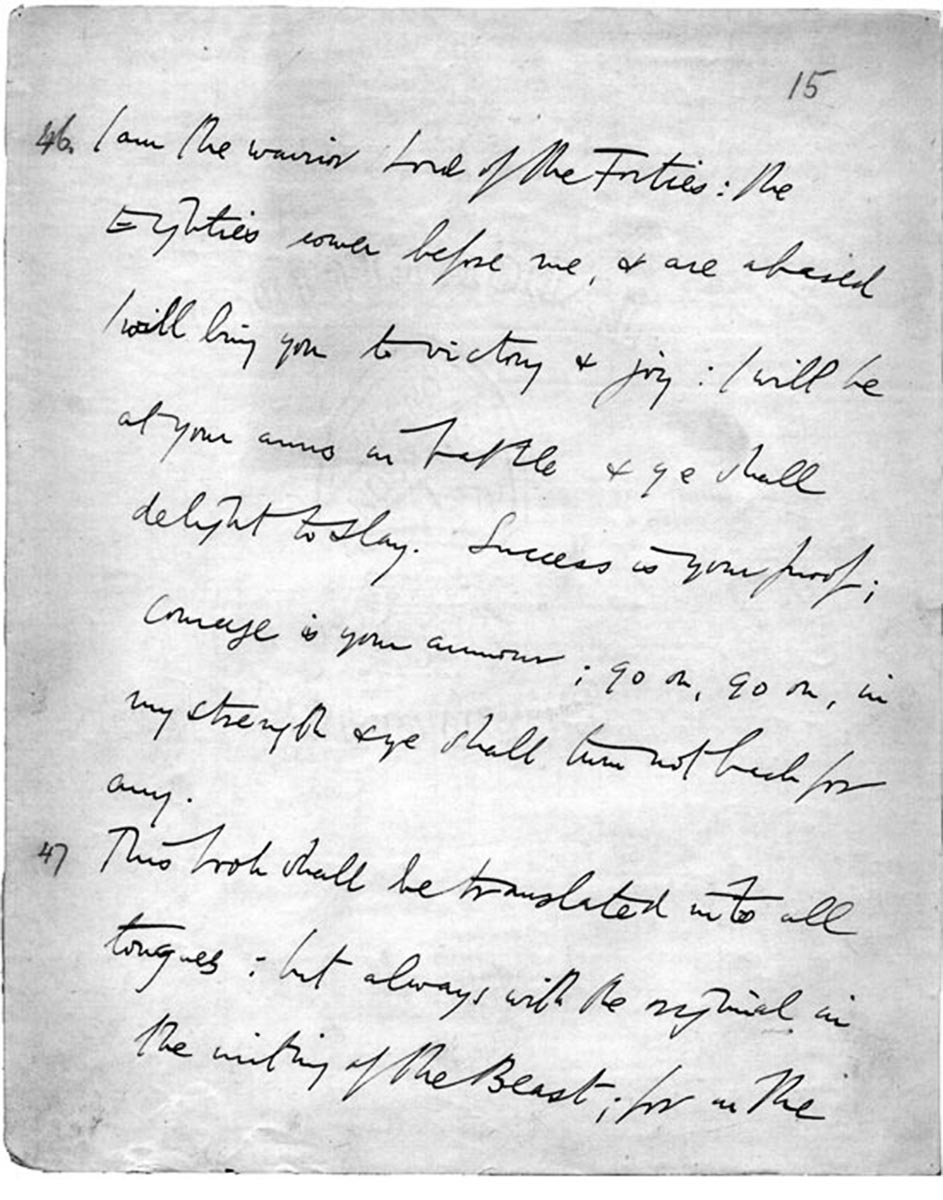 15
46. I am the warrior Lord of the Forties: the
Eighties cower before me, & are abased
I will bring you to victory & joy: I will be
at your arms in battle & ye shall
delight to slay. Success is your proof;
courage is your armour; go on, go on, in
my strength & ye shall turn not back for
any.
47 This book shall be translated into all
tongues: but always with the original in
the writing of the Beast; for in the